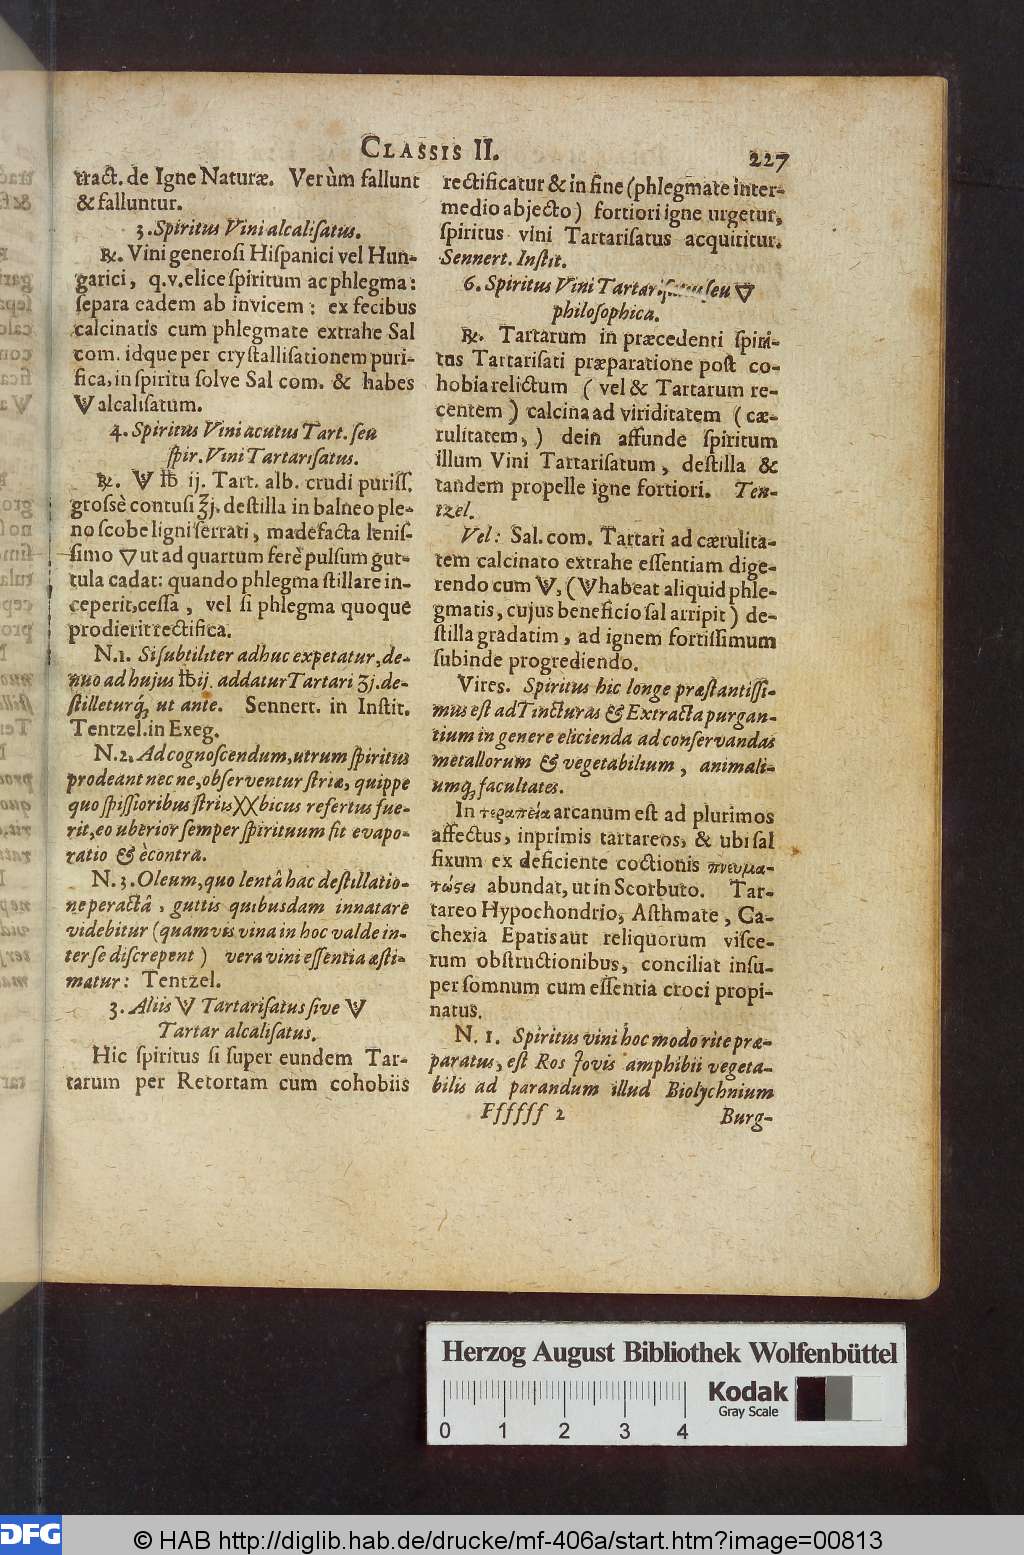 CLASSIS II. 227
tract. de Igne Naturæ. Verùm fallunt
& falluntur.
3. Spiritus Vini alcaliſatus.
℞. Vini generoſi Hiſpanici vel Hun-
garici, q.v. elice ſpiritum ac phlegma:
ſepara eadem ab invicem: ex fecibus
calcinatis cum phlegmate extrahe Sal
com. idque per cryſtalliſationem puri-
fica, in ſpiritu ſolve Sal com. & habes
alcaliſatum.
4. Spiritus Vini acutus Tart. ſeu
ſpir. Vini Tartariſatus.
℞. ℔ ij. Tart. alb. crudi puriſſ.
groſsè contuſi ℥j. deſtilla in balneo ple-
no ſcobe ligni ſerrati, madefacta leniſ-
ſimo 🜄 ut ad quartum ferè pulſum gut-
tula cadat: quando phlegma ſtillare in-
ceperit, ceſſa, vel ſi phlegma quoque
prodierit rectifica.
N.1. Si ſubtiliter adhuc expetatur, de-
nuo ad hujus ℔ij. addatur Tartari ℥j. de-
ſtilleturq; ut ante. Sennert. in Inſtit.
Tentzel. in Exeg.
N.2. Ad cognoſcendum, utrum ſpiritus
prodeant nec ne, obſerventur ſtriæ, quippe
quo ſpiſſioribus ſtriis XX bicus refertus fue-
rit, eo uberior ſemper ſpirituum fit evapo-
ratio & è contra.
N. 3. Oleum, quo lentâ hac deſtillatio-
ne peractâ, guttis quibusdam innatare
videbitur (quamvis vina in hoc valde in-
ter ſe diſcrepent) vera vini eſſentia æſti-
matur: Tentzel.
3. Aliis Tartariſatus ſive
Tartar alcaliſatus.
Hic ſpiritus ſi ſuper eundem Tar-
tarum per Retortam cum cohobiis
rectificatur & in fine (phlegmate inter-
medio abjecto) fortiori igne urgetur,
ſpiritus vini Tartariſatus acquiritur.
Sennert. Inſtit.
6. Spiritus Vini Tartariſatus ſeu 🜄
philoſophica.
℞. Tartarum in præcedenti ſpiri-
tus Tartariſati præparatione poſt co-
hobia relictum (vel & Tartarum re-
centem) calcina ad viriditatem (cæ-
rulitatem,) dein affunde ſpiritum
illum Vini Tartariſatum, deſtilla &
tandem propelle igne fortiori. Ten-
tzel.
Vel: Sal. com. Tartari ad cærulita-
tem calcinato extrahe eſſentiam dige-
rendo cum, ( habeat aliquid phle-
gmatis, cujus beneficio ſal arripit) de-
ſtilla gradatim, ad ignem fortiſſimum
ſubinde progrediendo.
Vires. Spiritus hic longe præſtantiſſi-
mus eſt ad Tincturas & Extracta purgan-
tium in genere elicienda ad conſervandas
metallorum & vegetabilium, animali-
umq; facultates.
In τεραπεία arcanum eſt ad plurimos
affectus, inprimis tartareos, & ubi ſal
fixum ex deficiente coctionis πνευμα-
τώσει abundat, ut in Scorbuto. Tar-
tareo Hypochondrio, Aſthmate, Ca-
chexia Epatis aut reliquorum viſce-
rum obſtructionibus, conciliat inſu-
per ſomnum cum eſſentia croci propi-
natus.
N. 1. Spiritus vini hoc modo rite præ-
paratus, eſt Ros Jovis amphibii vegeta-
bilis ad parandum illud Biolychnium
Fſſſſſ 2 Burg-
Herzog August Bibliothek Wolfenbüttel
Kodak
Gray Scale
0 1 2 3 4
DFG © HAB http://diglib.hab.de/drucke/mf-406a/start.htm?image=00813